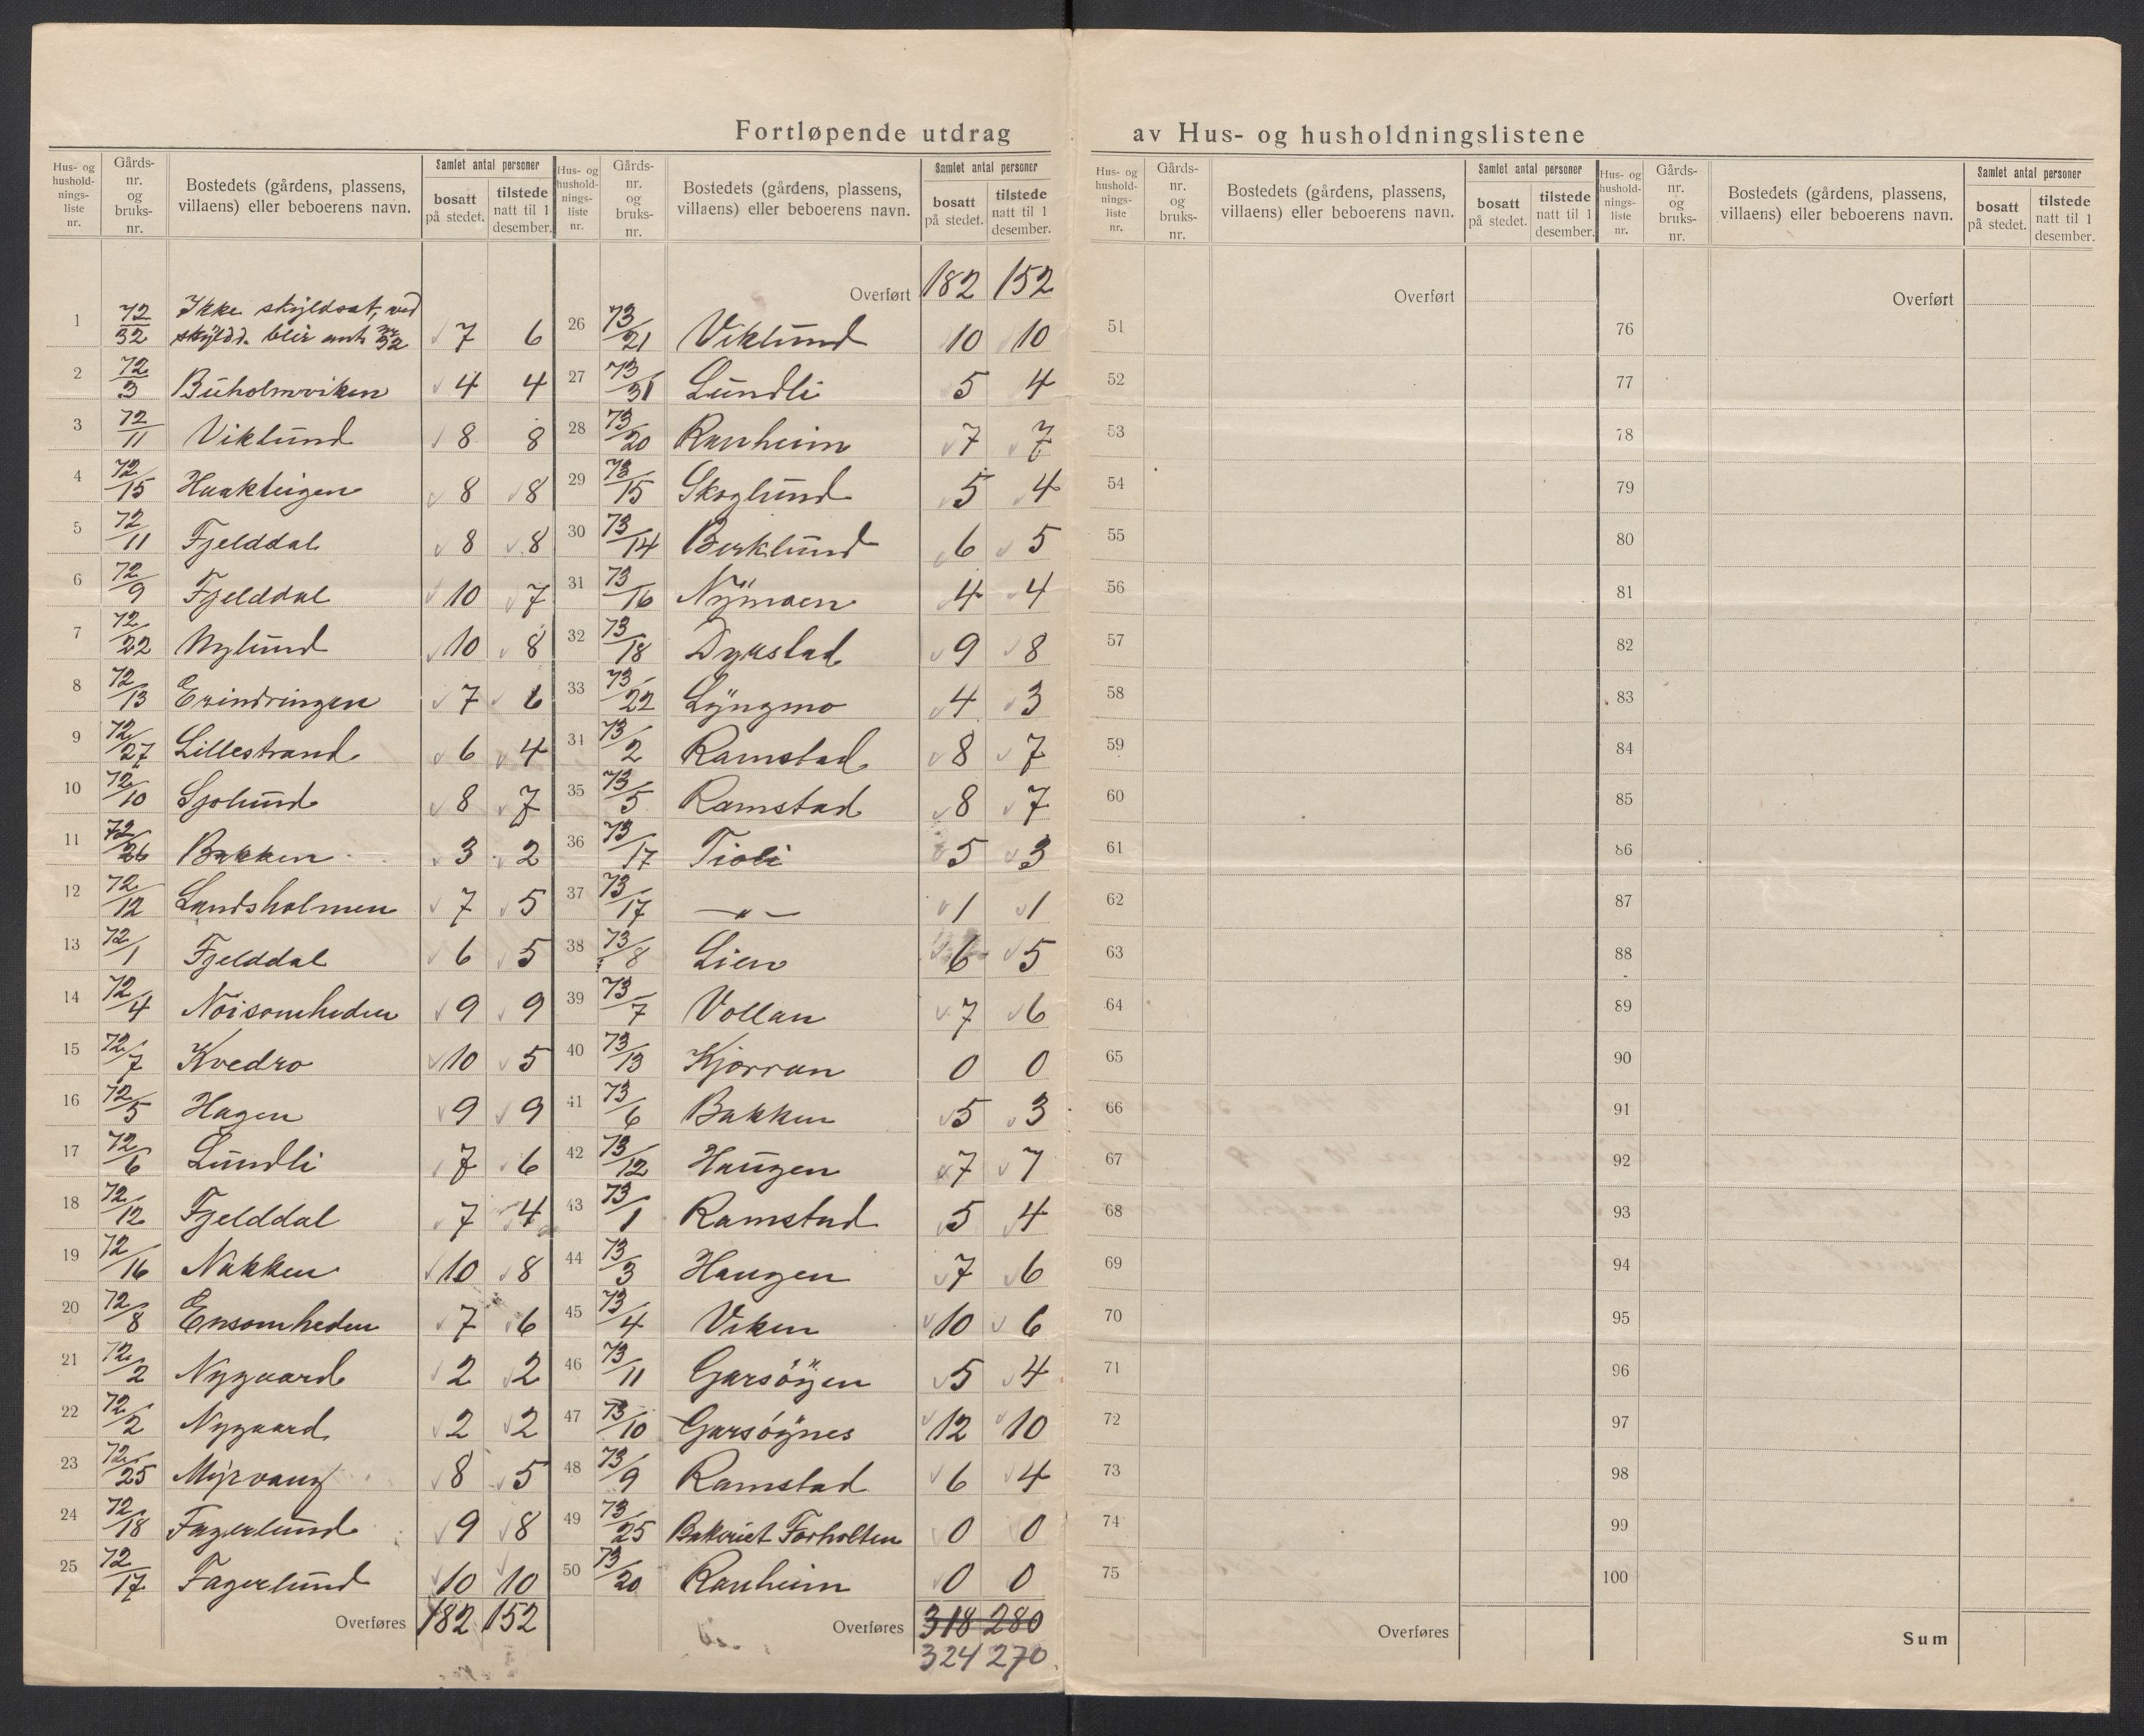 Fortløpende utdrag av Hus- og husholdningslistene
Hus- og hushold-nings-liste nr. | Gårds-nr. og bruks-nr. | Bostedets (gårdens, plassens, villaens) eller beboerens navn. | Samlet antal personer | bosatt på stedet. | tilstede natt til 1 desember.
1 72/32 Ikke skyldsat, ved
skyldd. blir ant. nr 32 7 6
2 72/3 Buholmviken 4 4
3 72/11 Viklund 8 8
4 72/15 Haakteigen 8 8
5 72/11 Fjelddal 8 8
6 72/9 Fjelddal 10 7
7 72/22 Nylund 10 8
8 72/13 Erindringen 7 6
9 72/27 Lillestrand 6 4
10 72/10 Sjolund 8 7
11 72/26 Bakken 3 2
12 72/12 Landsholmen 7 5
13 72/1 Fjelddal 6 5
14 72/4 Noisomheden 9 9
15 72/7 Kvedro 10 5
16 72/5 Hagen 9 9
17 72/6 Lundli 7 6
18 72/12 Fjelddal 7 4
19 72/16 Nakken 10 8
20 72/8 Ensomheden 7 6
21 72/2 Nygaard 2 2
22 72/2 Nygaard 2 2
23 72/25 Myrvang 8 5
24 72/18 Fagerlund 9 8
25 72/17 Fagerlund 10 10
Overføres 182 152
Hus- og hushold-nings-liste nr. | Gårds-nr. og bruks-nr. | Bostedets (gårdens, plassens, villaens) eller beboerens navn. | Samlet antal personer | bosatt på stedet. | tilstede natt til 1 desember.
Overført 182 152
26 73/21 Viklund 10 10
27 73/31 Lundli 5 4
28 73/20 Ranheim 7 7
29 73/15 Skoglund 5 4
30 73/14 Berklund 6 5
31 73/16 Nymoen 4 4
32 73/18 Dyrstad 9 8
33 73/22 Lyngmo 4 3
34 73/2 Ramstad 8 7
35 73/5 Ramstad 8 7
36 73/17 Tioli 5 3
37 73/17 —„— 1 1
38 73/8 Lien 6 5
39 73/7 Vollan 7 6
40 73/13 Kjorran 0 0
41 73/6 Bakken 5 3
42 73/12 Haugen 7 7
43 73/1 Ramstad 5 4
44 73/3 Haugen 7 6
45 73/4 Viken 10 6
46 73/11 Garsöyen 5 4
47 73/10 Garsöynes 12 10
48 73/9 Ramstad 6 4
49 73/25 Bakeriet Forholten 0 0
50 73/20 Ranheim 0 0
Overføres 318 280
324 270
Hus- og hushold-nings-liste nr. | Gårds-nr. og bruks-nr. | Bostedets (gårdens, plassens, villaens) eller beboerens navn. | Samlet antal personer | bosatt på stedet. | tilstede natt til 1 desember.
Overført
51
52
53
54
55
56
57
58
59
60
61
62
63
64
65
66
67
68
69
70
71
72
73
74
75
Overføres
Hus- og hushold-nings-liste nr. | Gårds-nr. og bruks-nr. | Bostedets (gårdens, plassens, villaens) eller beboerens navn. | Samlet antal personer | bosatt på stedet. | tilstede natt til 1 desember.
Overført
76
77
78
79
80
81
82
83
84
85
86
87
88
89
90
91
92
93
94
95
96
97
98
99
100
Sum